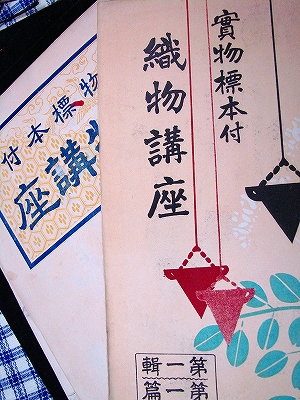 實物標本付
織物講座
第一輯
第一篇
物標本付
物講座